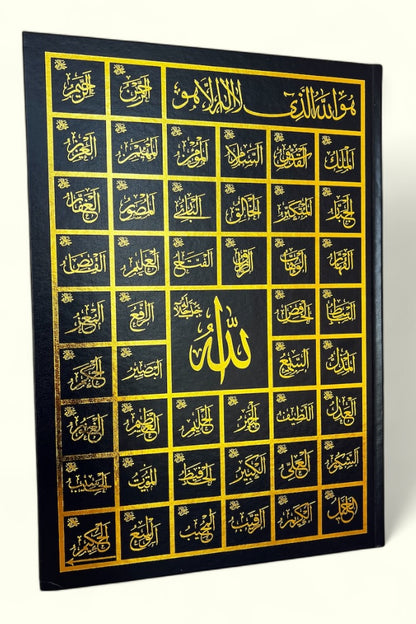 هو الله الذي لا إله إلا هو الرحمن الرحيم
الملك القدوس السلام المؤمن المهيمن العزيز
الجبار المتكبر الخالق البارئ المصور الغفار
القهار الوهاب الرزاق الفتاح العليم القابض
الباسط الخافض الرافع المعز
الله جل جلاله
المذل السميع البصير الحكم
العدل اللطيف الخبير الحليم العظيم الغفور
الشكور العلي الكبير الحفيظ المقيت الحسيب
الجليل الكريم الرقيب المجيب الواسع الحكيم